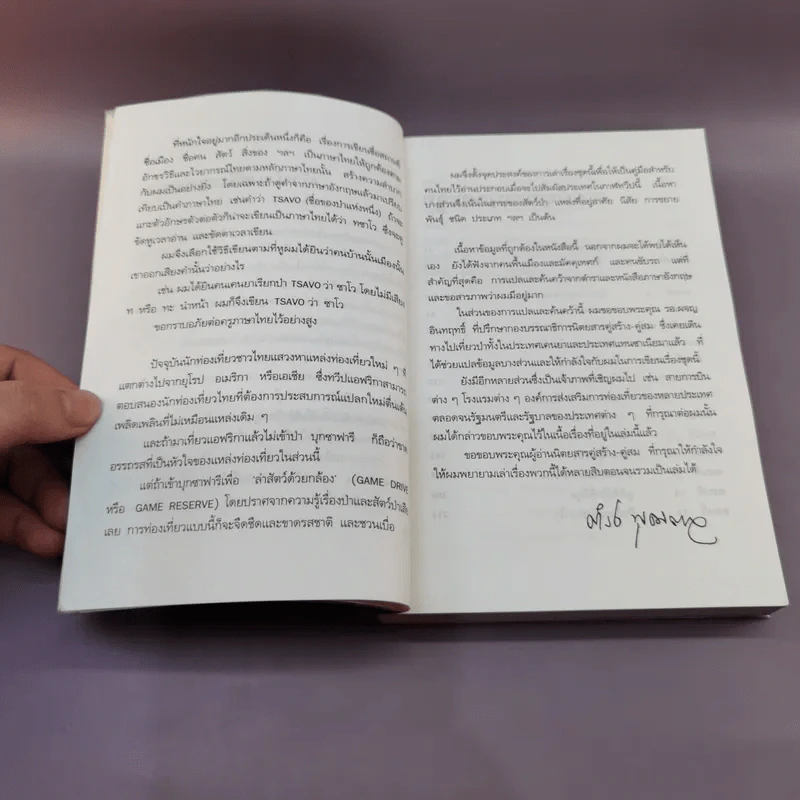 ที่หนักใจอยู่มากอีกประเด็นหนึ่งก็คือ เรื่องการเขียนชื่อสถานที่
ชื่อเมือง ชื่อคน สัตว์ สิ่งของ ฯลฯ เป็นภาษาไทยให้ถูกต้องตาม
อักขรวิธีและไวยากรณ์ไทยตามหลักภาษาไทยนั้น สร้างความลำบาก
กับผมเป็นอย่างยิ่ง โดยเฉพาะถ้าดูคำจากภาษาอังกฤษแล้วมาเปรียบ
เทียบเป็นคำภาษาไทย เช่นคำว่า TSAVO (ชื่อของป่าแห่งหนึ่ง) ถ้าจะ
แกะตัวอักษรตัวต่อตัวก็น่าจะเขียนเป็นภาษาไทยได้ว่า ทซาโว ซึ่งจะดู
ขัดหูเวลาอ่าน และขัดตาเวลาเขียน
ผมจึงเลือกใช้วิธีเขียนตามที่หูผมได้ยินว่าคนบ้านนั้นเมืองนั้น
เขาออกเสียงคำนั้นว่าอย่างไร
เช่น ผมได้ยินคนเคนยาเรียกป่า TSAVO ว่า ซาโว โดยไม่มีเสียง
ท หรือ ทะ นำหน้า ผมก็จึงเขียน TSAVO ว่า ซาโว
ขอกราบอภัยต่อครูภาษาไทยไว้อย่างสูง
ปัจจุบันนักท่องเที่ยวชาวไทยแสวงหาแหล่งท่องเที่ยวใหม่ ๆ ที่
แตกต่างไปจากยุโรป อเมริกา หรือเอเชีย ซึ่งทวีปแอฟริกาสามารถ
ตอบสนองนักท่องเที่ยวไทยที่ต้องการประสบการณ์แปลกใหม่ตื่นเต้น
เพลิดเพลินที่ไม่เหมือนแหล่งเดิม ๆ
และถ้ามาเที่ยวแอฟริกาแล้วไม่เข้าป่า บุกซาฟารี ก็ถือว่าขาด
อรรถรสที่เป็นหัวใจของแหล่งท่องเที่ยวในส่วนนี้
แต่ถ้าเข้าบุกซาฟารีเพื่อ 'ล่าสัตว์ด้วยกล้อง' (GAME DRIVE
หรือ GAME RESERVE) โดยปราศจากความรู้เรื่องป่าและสัตว์ป่าเสีย
เลย การท่องเที่ยวแบบนี้ก็จะจืดชืดและขาดรสชาติ และชวนเบื่อ
ผมจึงตั้งจุดประสงค์ของการเล่าเรื่องชุดนี้เพื่อให้เป็นคู่มือสำหรับ
คนไทยไว้อ่านประกอบเมื่อจะไปสัมผัสประเทศในกาฬทวีปนี้ เนื้อหา
บางส่วนจึงเพิ่มในสาระของสัตว์ป่า แหล่งที่อยู่อาศัย นิสัย การขยาย
พันธุ์ ชนิด ประเภท ฯลฯ เป็นต้น
เนื้อหาข้อมูลที่ถูกต้องในหนังสือนี้ นอกจากผมจะได้พบได้เห็น
เอง ยังได้ฟังจากคนพื้นเมืองและมัคคุเทศก์ และคนขับรถ แต่ที่
สำคัญที่สุดคือ การแปลและค้นคว้าจากตำราและหนังสือภาษาอังกฤษ
และขอสารภาพว่าผมมีอยู่มาก
ในส่วนของการแปลและค้นคว้านี้ ผมขอขอบพระคุณ รอ.ผจญ
อินทฤทธิ์ ที่ปรึกษากองบรรณาธิการนิตยสารคู่สร้าง-คู่สม ซึ่งเคยเดิน
ทางไปเที่ยวป่าทั้งในประเทศเคนยาและประเทศแทนซาเนียมาแล้ว ที่
ได้ช่วยแปลข้อมูลบางส่วนและให้กำลังใจกับผมในการเขียนเรื่องชุดนี้
ยังมีอีกหลายส่วนซึ่งเป็นเจ้าภาพที่เชิญผมไป เช่น สายการบิน
ต่าง ๆ โรงแรมต่าง ๆ องค์การส่งเสริมการท่องเที่ยวของหลายประเทศ
ตลอดจนรัฐมนตรีและรัฐบาลของประเทศต่าง ๆ ที่กรุณาต่อผมนั้น
ผมได้กล่าวขอบพระคุณไว้ในเนื้อเรื่องที่อยู่ในเล่มนี้แล้ว
ขอขอบพระคุณผู้อ่านนิตยสารคู่สร้าง-คู่สม ที่กรุณาให้กำลังใจ
ให้ผมพยายามเล่าเรื่องพวกนี้ได้หลายสิบตอนจนรวมเป็นเล่มได้